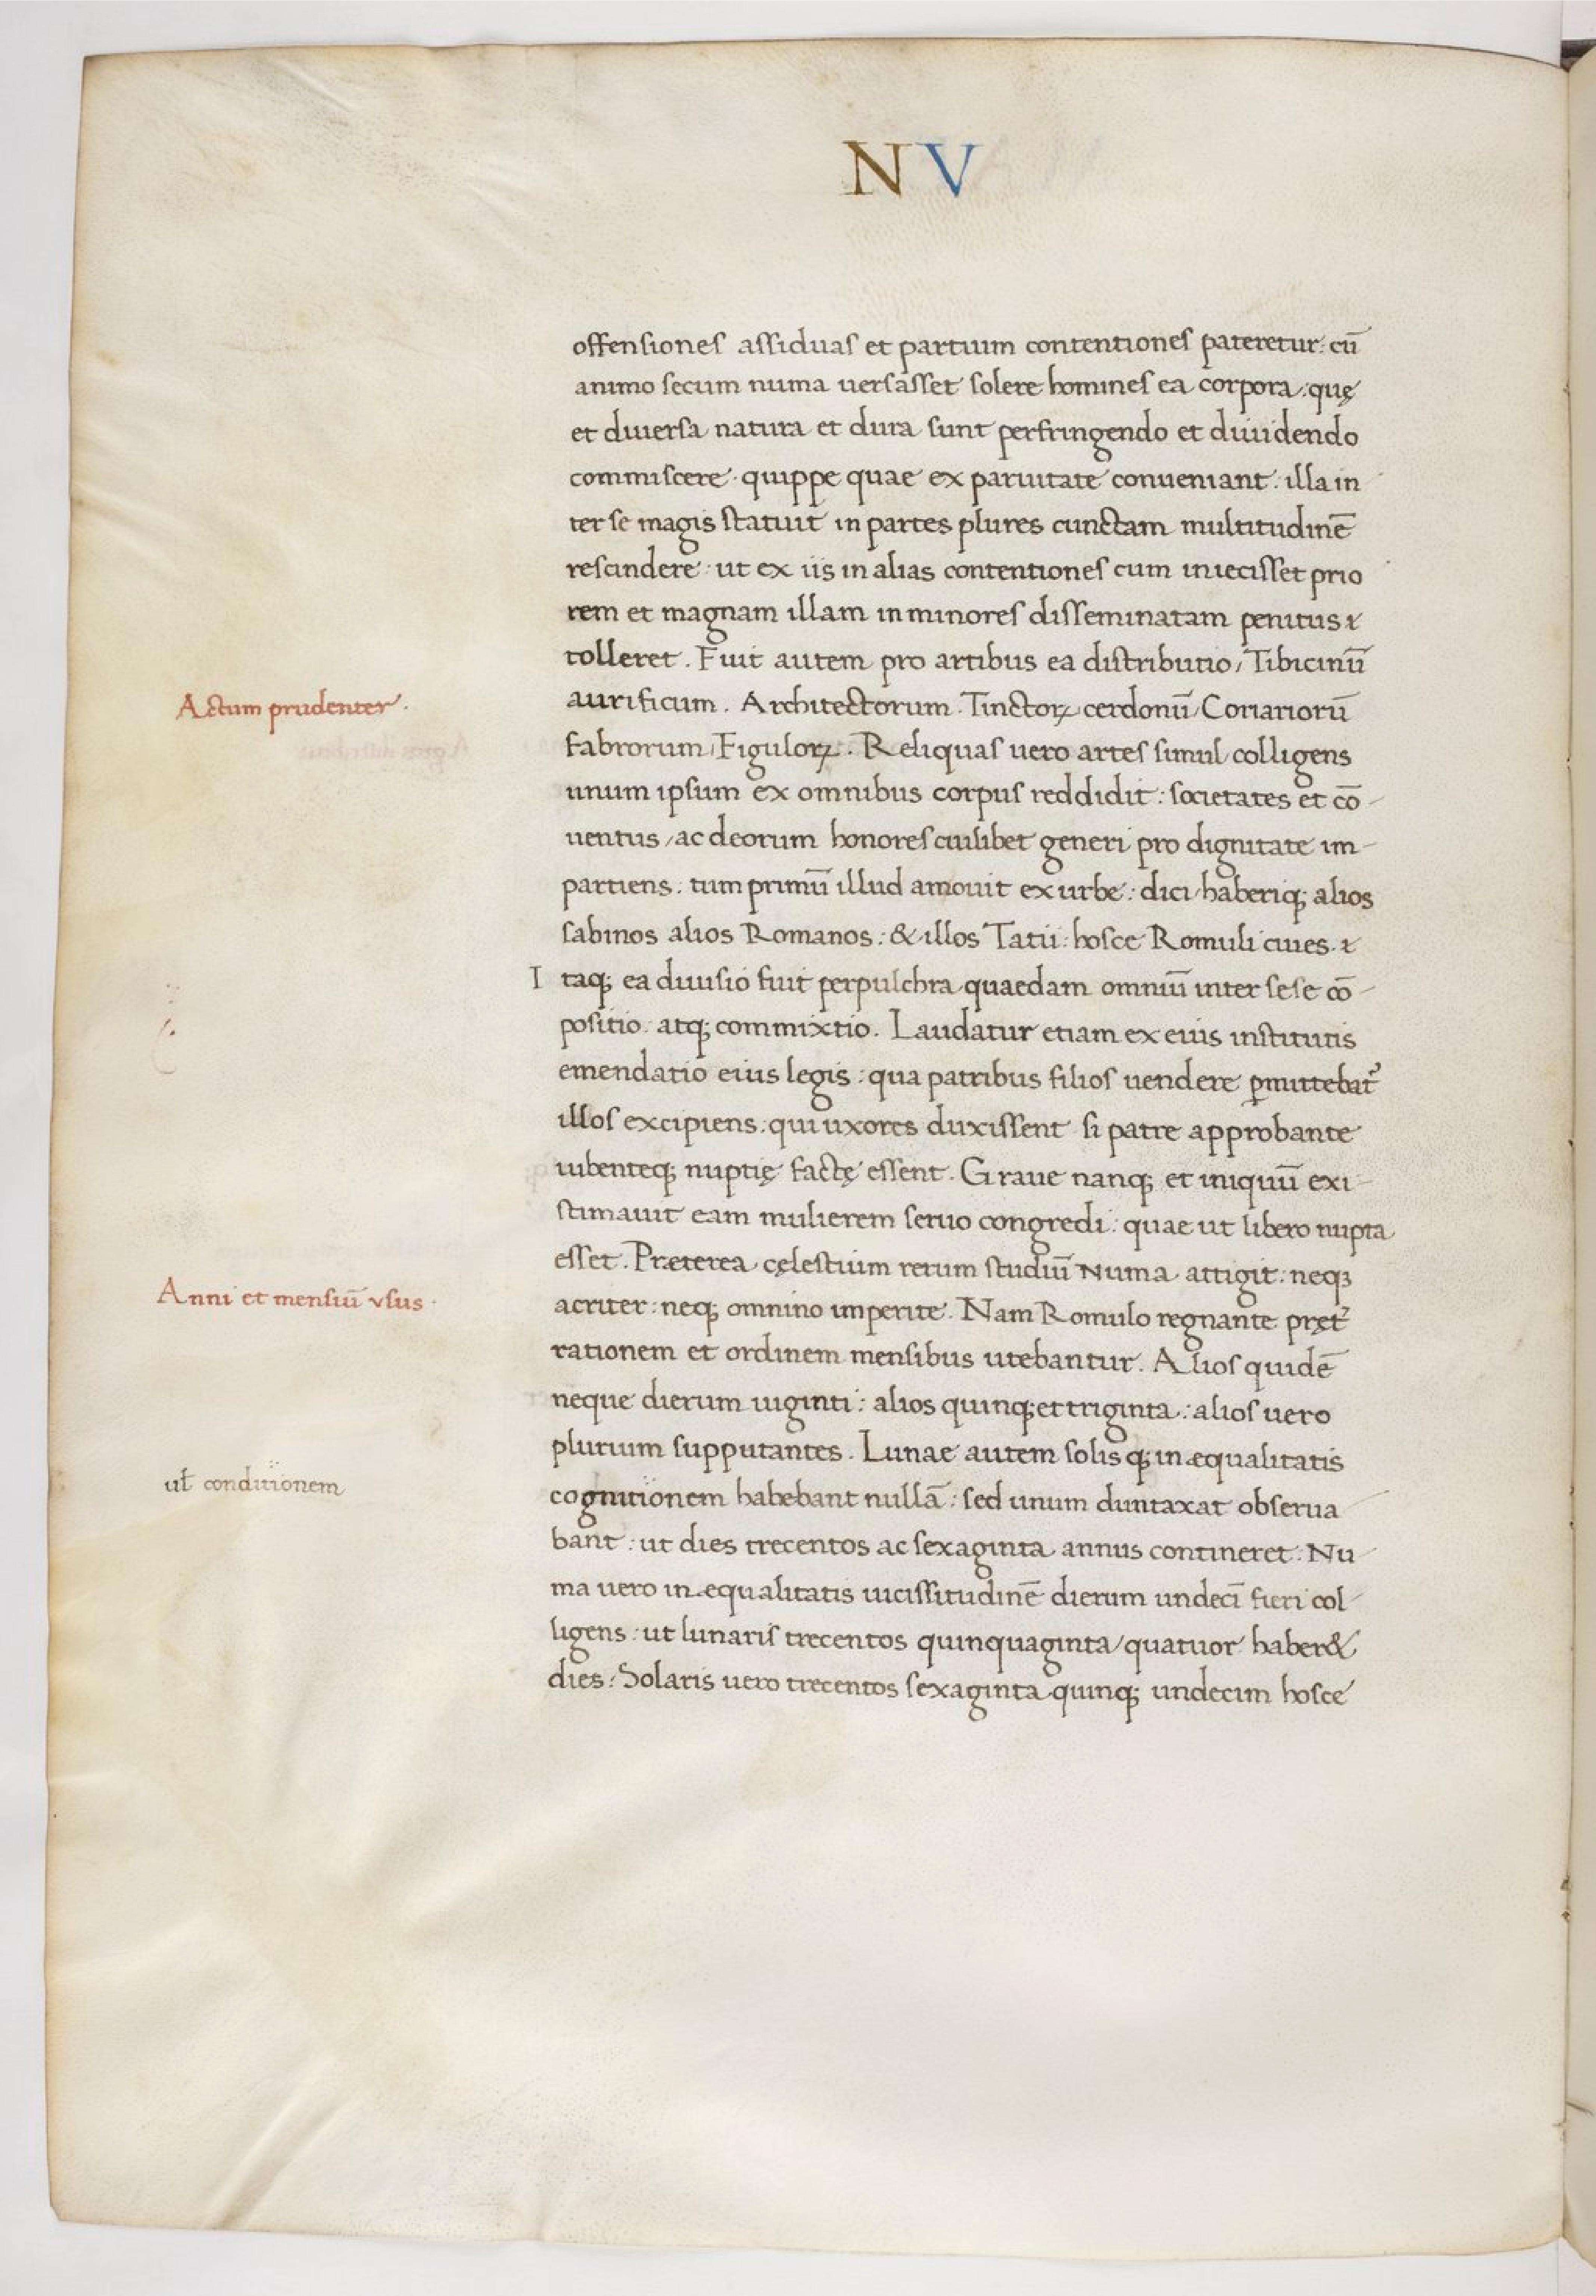 N V
offensiones assiduas et partium contentiones pateretur: cū
animo secum numa uersasset solere homines ea corpora: quę
et diuersa natura et dura sunt perfringendo et diuidendo
commiscere· quippe quae ex paruitate conueniant: illa in
ter se magis statuit in partes plures cunctam multitudinē
rescindere: ut ex iis in alias contentiones cum iniecisset prio
rem et magnam illam in minores disseminatam penitus &
tolleret. Fuit autem pro artibus ea distributio/ Tibicinū
Actum prudenter.
aurificum. Architectorum. Tinctoꝝ cerdonū/ Coriariorū
fabrorum/ Figuloꝝ. Reliquas uero artes simul colligens
unum ipsum ex omnibus corpus reddidit: societates et cō-
uentus/ ac deorum honores cuilibet generi pro dignitate im-
partiens: tum primū illud amouit ex urbe: dici haberiq; alios
sabinos alios Romanos: & illos Tatii: hosce Romuli ciues. &
I taq; ea diuisio fuit perpulchra quaedam omniū inter sese cō-
positio: atq; commixtio. Laudatur etiam ex eius institutis
emendatio eius legis: qua patribus filios uendere ꝑmittebat᷑
illos excipiens: qui uxores duxissent si patre approbante
iubenteq; nuptię factę essent. Graue nanq; et iniquū exi-
stimauit eam mulierem seruo congredi: quae ut libero nupta
esset. Præterea cęlestium rerum studiū Numa attigit: neq;
Anni et mensiū vsus.
acriter: neq; omnino imperite. Nam Romulo regnante pręt᷑
rationem et ordinem mensibus utebantur. Alios quidē
neque dierum uiginti: alios quinq; et triginta: alios uero
plurium supputantes. Lunae autem solisq; inæqualitatis
ul̄ conditionem
cognitionem habebant nullā: sed unum duntaxat obserua-
bant: ut dies trecentos ac sexaginta annus contineret. Nu-
ma uero inæqualitatis uicissitudinē dierum undecī fieri col-
ligens: ut lunaris trecentos quinquaginta/ quatuor haber&
dies: Solaris uero trecentos sexaginta quinq; undecim hosce